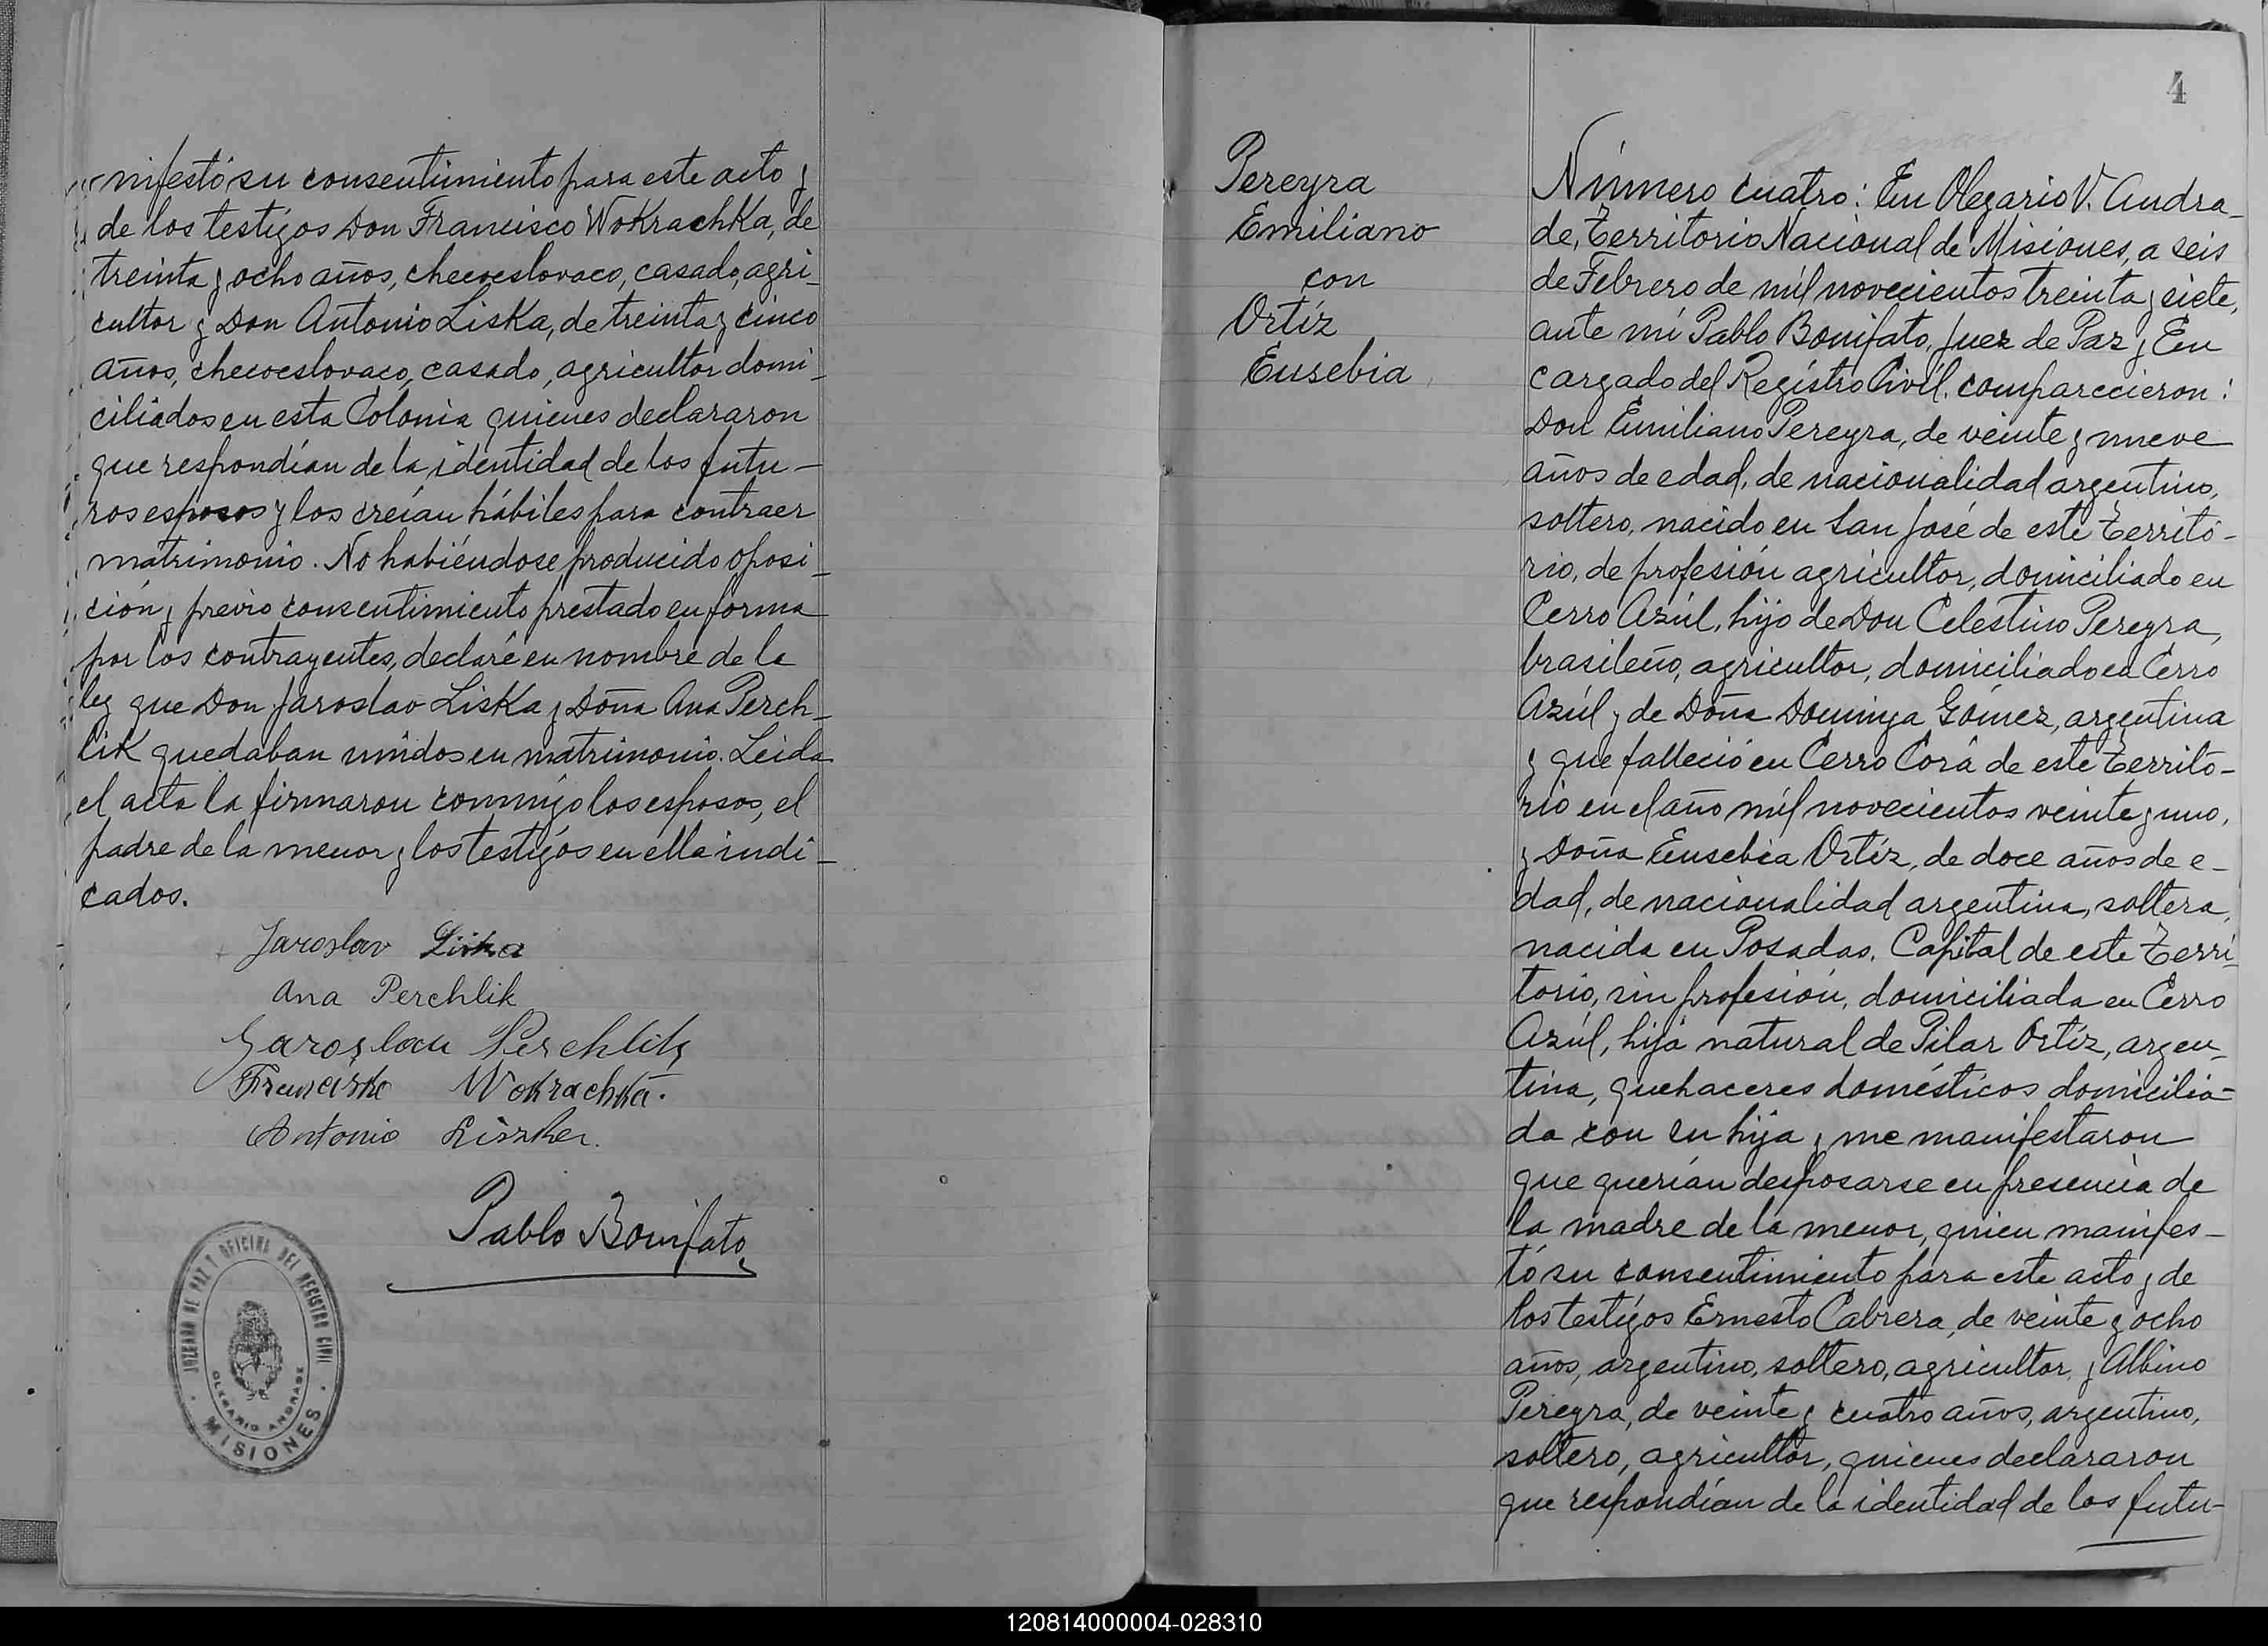 nifestó su consentimiento para este acto y
de los testigos Don Francisco Wokrachka, de
treinta y ocho años, checoeslovaco, casado, agri-
cultor y Don Antonio Liska, de treinta y cinco
años, checoeslovaco, casado, agricultor domi-
ciliados en esta Colonia quienes declararon
que respondían de la identidad de los futu-
ros esposos y los creían hábiles para contraer
matrimonio. No habiéndose producido oposi-
ción y previo consentimiento prestado en forma
por los contrayentes, declaré en nombre de la
ley que Don Jaroslao Liska y Doña Ana Perch-
lik quedaban unidos en matrimonio. Leida
el acta la firmaron conmigo los esposos, el
padre de la menor y los testigos en ella indi-
cados.
Jaroslav Liska
Ana Perchlik
Jaroslau Perchlik
Francisko Wokrachka.
Antonio Liszka.
Pablo Bonifato
JUZGADO DE PAZ Y OFICINA DEL REGISTRO CIVIL
OLEGARIO ANDRADE
MISIONES
4
Pereyra
Emiliano
con
Ortíz
Eusebia
Número cuatro: En Olegario V. Andra-
de, Territorio Nacional de Misiones, a seis
de Febrero de mil novecientos treinta y siete,
ante mí Pablo Bonifato, Juez de Paz y En
cargado del Registro Civil, comparecieron:
Don Emiliano Pereyra, de veinte y nueve
años de edad, de nacionalidad argentino,
soltero, nacido en San José de este Territo-
rio, de profesión agricultor, domiciliado en
Cerro Azúl, hijo de Don Celestino Pereyra,
brasileño, agricultor, domiciliado en Cerro
Azúl y de Doña Dominga Gómez, argentina
y que falleció en Cerro Corá de este Territo-
rio en el año mil novecientos veinte y uno,
y Doña Eusebia Ortíz, de doce años de e-
dad, de nacionalidad argentina, soltera,
nacida en Posadas, Capital de este Terri-
torio, sin profesión, domiciliada en Cerro
Azúl, hija natural de Pilar Ortíz, argen-
tina, quehaceres domésticos domicilia-
da con su hija y me manifestaron
que querían desposarse en presencia de
la madre de la menor, quien manifes-
tó su consentimiento para este acto y de
los testigos Ernesto Cabrera, de veinte y ocho
años, argentino, soltero, agricultor, y Albino
Pereyra, de veinte y cuatro años, argentino,
soltero, agricultor, quienes declararon
que respondían de la identidad de los futu-
120814000004-028310